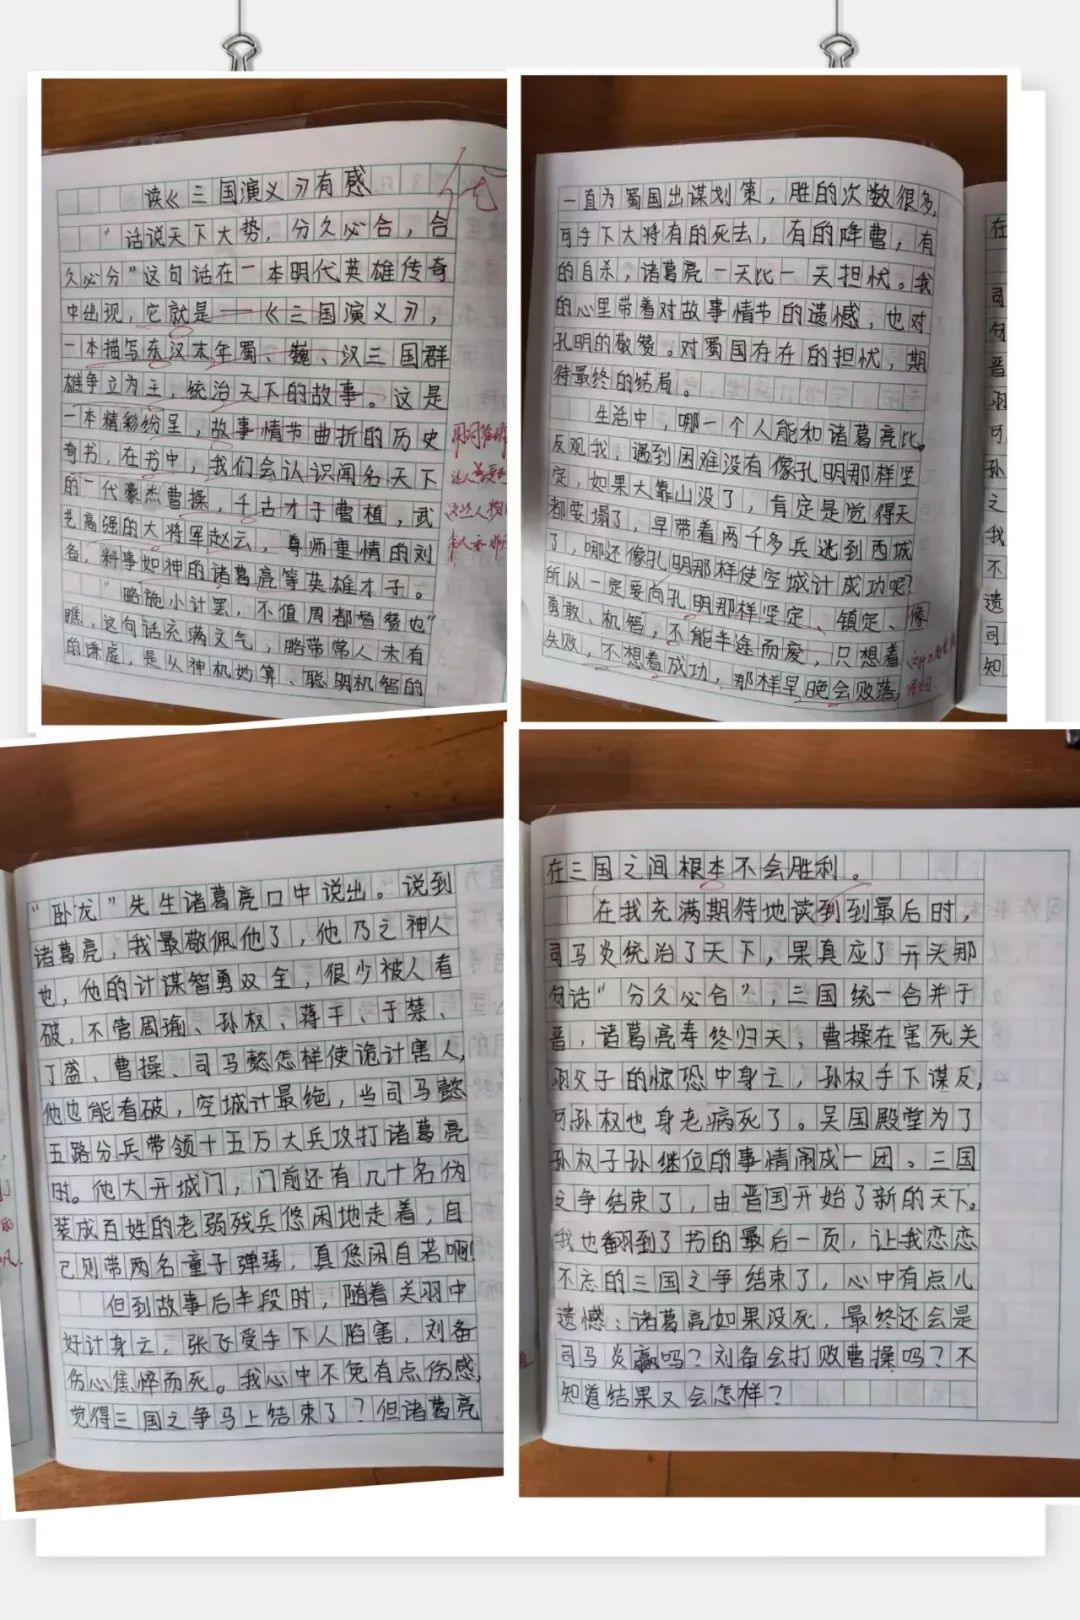 读《三国演义》有感
“话说天下大势，分久必合，合
久必分”这句话在一本明代英雄传奇
中出现，它就是——《三国演义》，
一本描写东汉末年蜀、巍、汉三国群
雄争立为王，统治天下的故事。这是
一本精彩纷呈，故事情节曲折的历史
奇书，在书中，我们会认识闻名天下
的一代豪杰曹操，千古才子曹植，武
艺高强的大将军赵云，尊师重情的刘
备，料事如神的诸葛亮等英雄才子。
“略施小计罢，不值周都督赞也”
瞧，这句话充满文气，略带常人未有
的谦虚，是从神机妙算、聪明机智的
“卧龙”先生诸葛亮口中说出。说到
诸葛亮，我最敬佩他了，他乃之神人
也，他的计谋智勇双全，很少被人看
破，不管周瑜、孙权、蒋干、于禁、
丁盛、曹操、司马懿怎样使诡计害人，
他也能看破，空城计最绝，当司马懿
五路分兵带领十五万大兵攻打诸葛亮
时。他大开城门，门前还有几十名伪
装成百姓的老弱残兵悠闲地走着，自
己则带两名童子弹琴，真悠闲自若啊！
但到故事后半段时，随着关羽中
奸计身亡，张飞受手下人陷害，刘备
伤心焦悴而死。我心中不免有点伤感，
觉得三国之争马上结束了？但诸葛亮
一直为蜀国出谋划策，胜的次数很多，
可手下大将有的死去，有的降曹，有
的自杀，诸葛亮一天比一天担忧。我
的心里带着对故事情节的遗憾，也对
孔明的敬赞。对蜀国存在的担忧，期
待最终的结局。
生活中，哪一个人能和诸葛亮比。
反观我，遇到困难没有像孔明那样坚
定，如果大靠山没了，肯定是觉得天
都要塌了，早带着两千多兵逃到西城
了，哪还像孔明那样使空城计成功呢？
所以一定要向孔明那样坚定、镇定、像
勇敢、机智，不能半途而废，只想着
失败，不想着成功，那样早晚会败落，
在三国之间根本不会胜利。
在我充满期待地读到到最后时，
司马炎统治了天下，果真应了开头那
句话“分久必合”，三国统一合并于
晋，诸葛亮寿终归天，曹操在害死关
羽父子的惊恐中身亡，孙权手下谋反，
可孙权也身老病死了。吴国殿堂为了
孙权子孙继位的事情闹成一团。三国
之争结束了，由晋国开始了新的天下。
我也翻到了书的最后一页，让我恋恋
不忘的三国之争结束了，心中有点儿
遗憾：诸葛亮如果没死，最终还会是
司马炎赢吗？刘备会打败曹操吗？不
知道结果又会怎样？